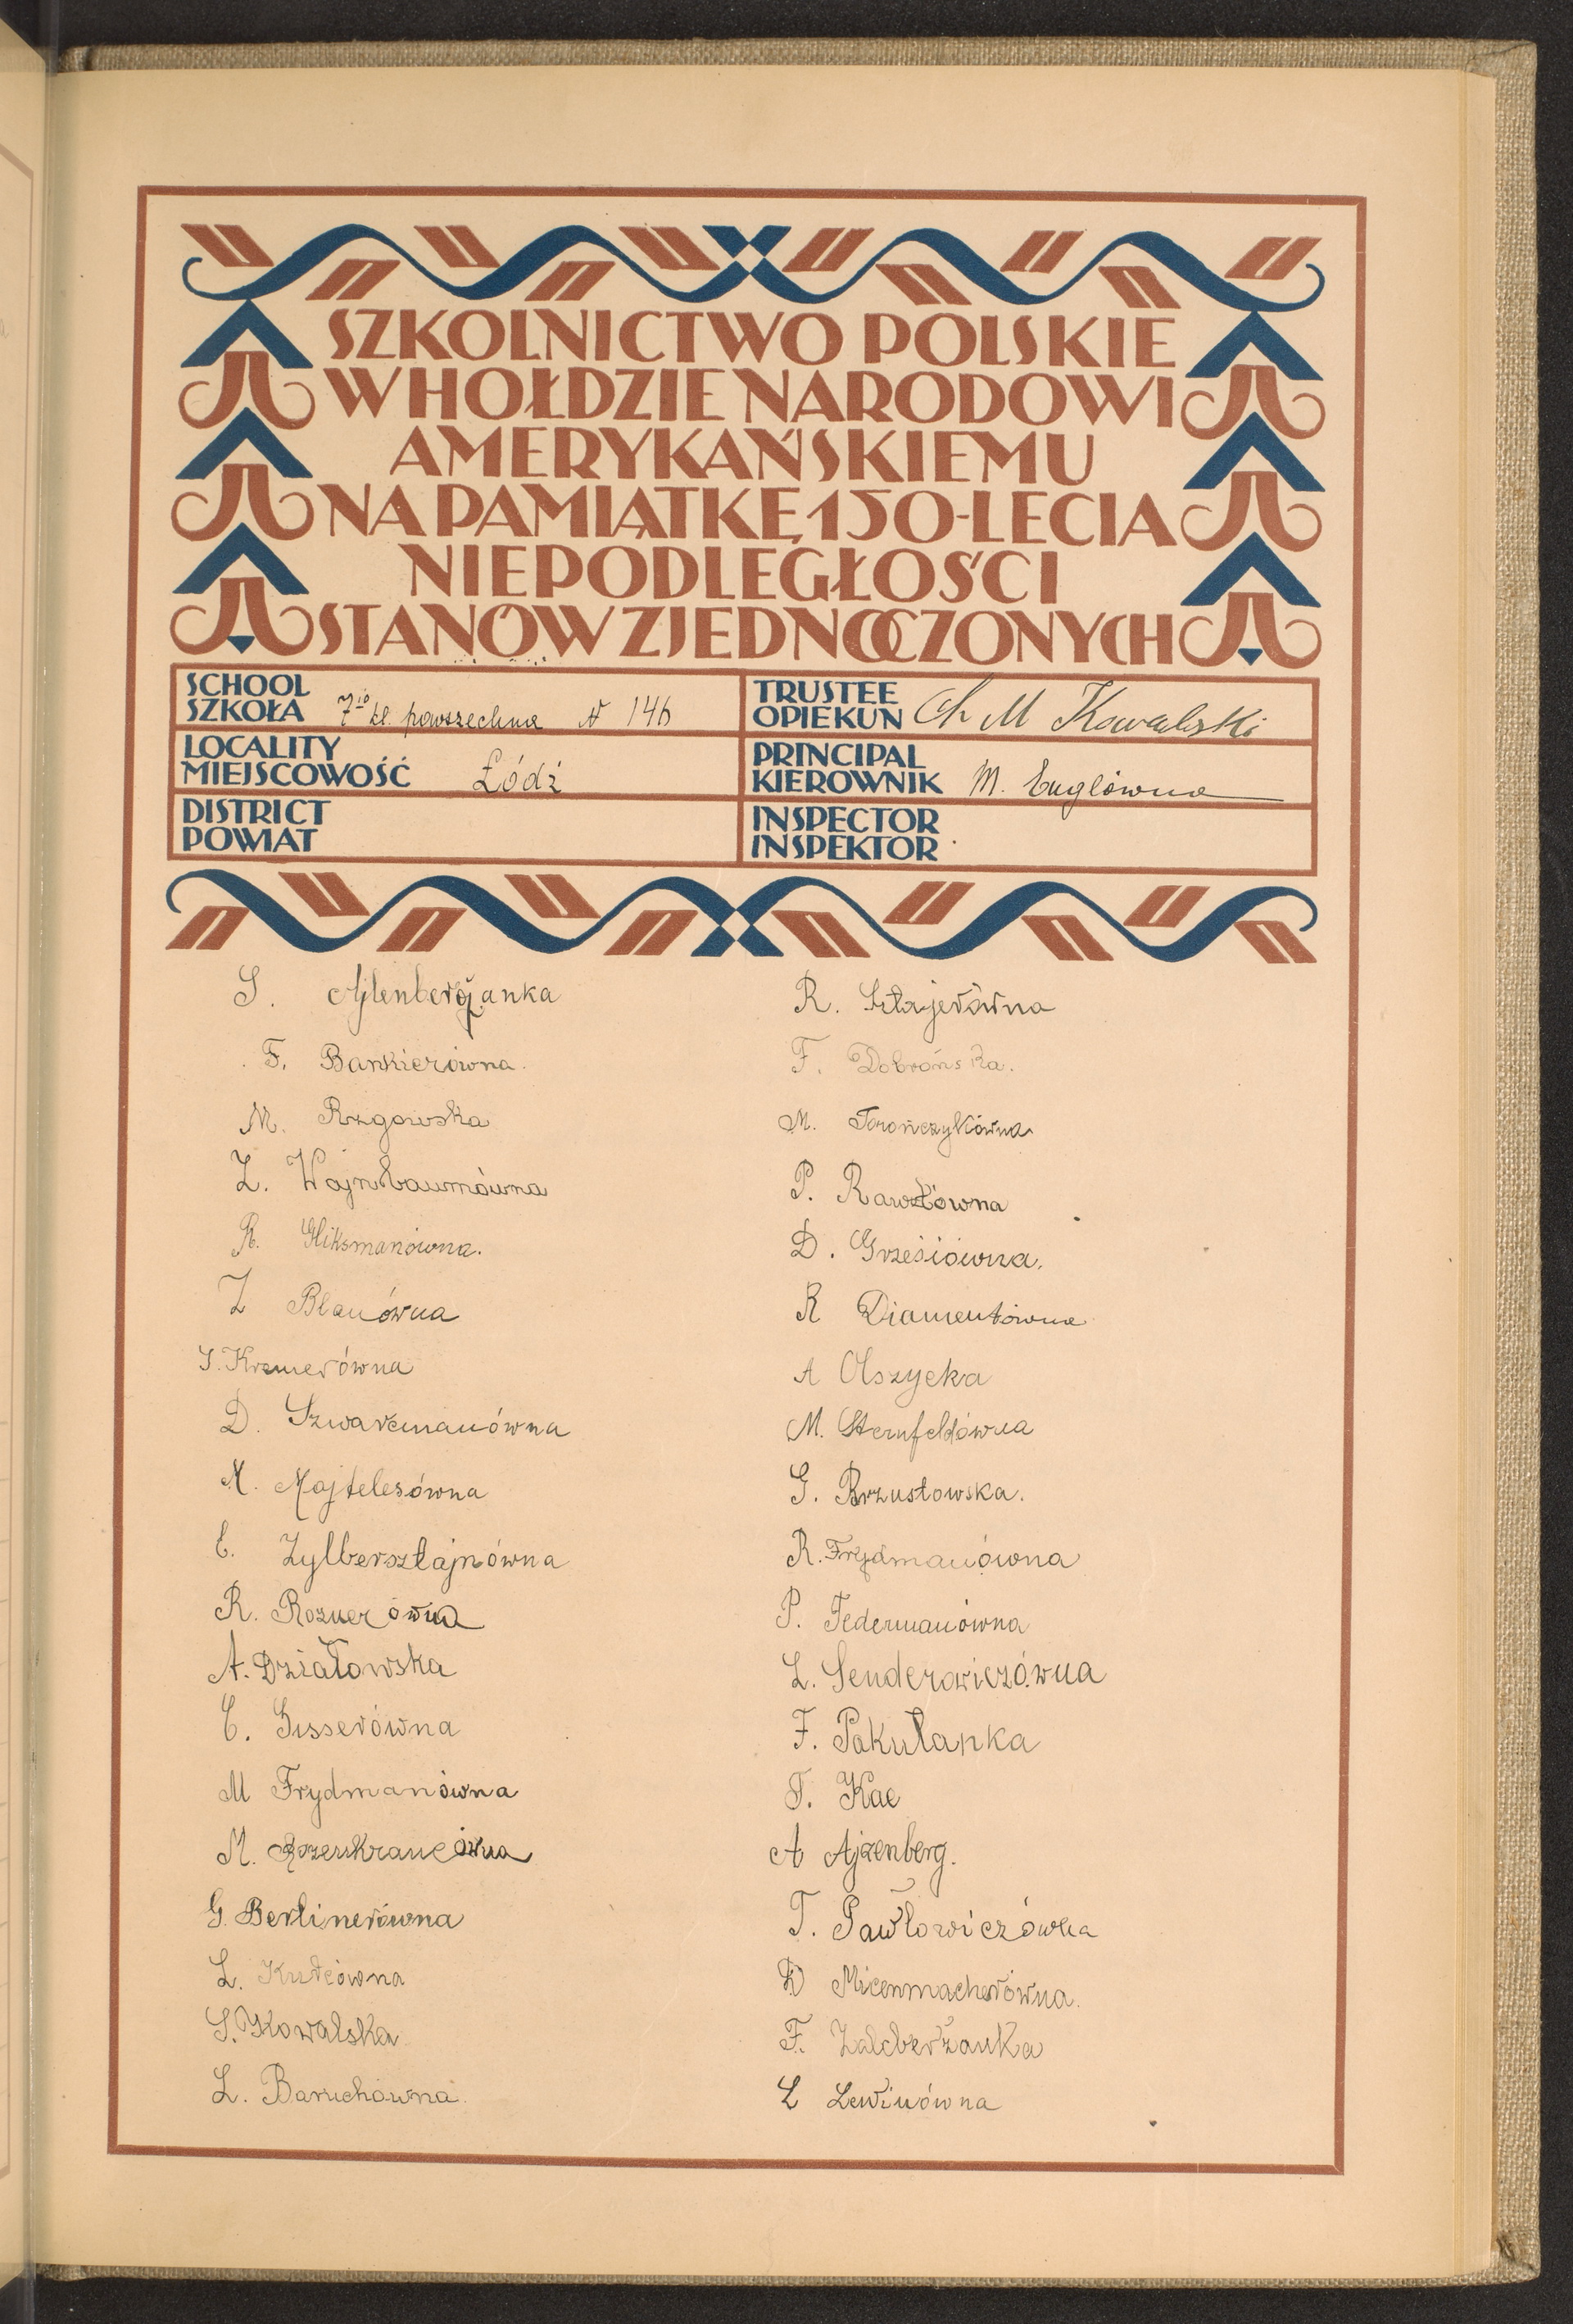 SZKOLNICTWO POLSKIE
W HOŁDZIE NARODOWI
AMERYKAŃSKIEMU
NA PAMIĄTKĘ 150-LECIA
NIEPODLEGŁOŚCI
STANÓW ZJEDNOCZONYCH
SCHOOL
SZKOŁA 7io kl. powszechna N 146
LOCALITY
MIEJSCOWOŚĆ Łódź
DISTRICT
POWIAT
TRUSTEE
OPIEKUN Ch M Kowalski
PRINCIPAL
KIEROWNIK M. Englówna
INSPECTOR
INSPEKTOR
S. Ajlenberżanka
F. Bankierówna.
M. Rzgowska
Z. Wajnbaumówna
R. Gliksmanówna.
Z Blauówna
S. Kremerówna
D. Szwarcmanówna
M. Majtelesówna
E. Zylbersztajnówna
R. Roznerówna
A. Działowska
C. Gisserówna
M Frydmanówna
M. Rozenkrancówna
G. Berlinerówna
L. Kurcówna
S. Kowalska
L. Baruchówna.
R. Sztajerówna
F. Dobrońska.
M. Torończykówna
P. Rawetówna
D. Grzesiówna.
R Diamentówna
A Olszycka
M. Sternfeldówna
G. Brzustowska.
R. Frydmanówna
P. Federmanówna
L. Senderowiczówna
F. Pakułanka
F. Kac
A Ajzenberg.
T. Pawłowiczówna
D Micenmacherówna.
F. Zalcberżanka
L Lewinówna